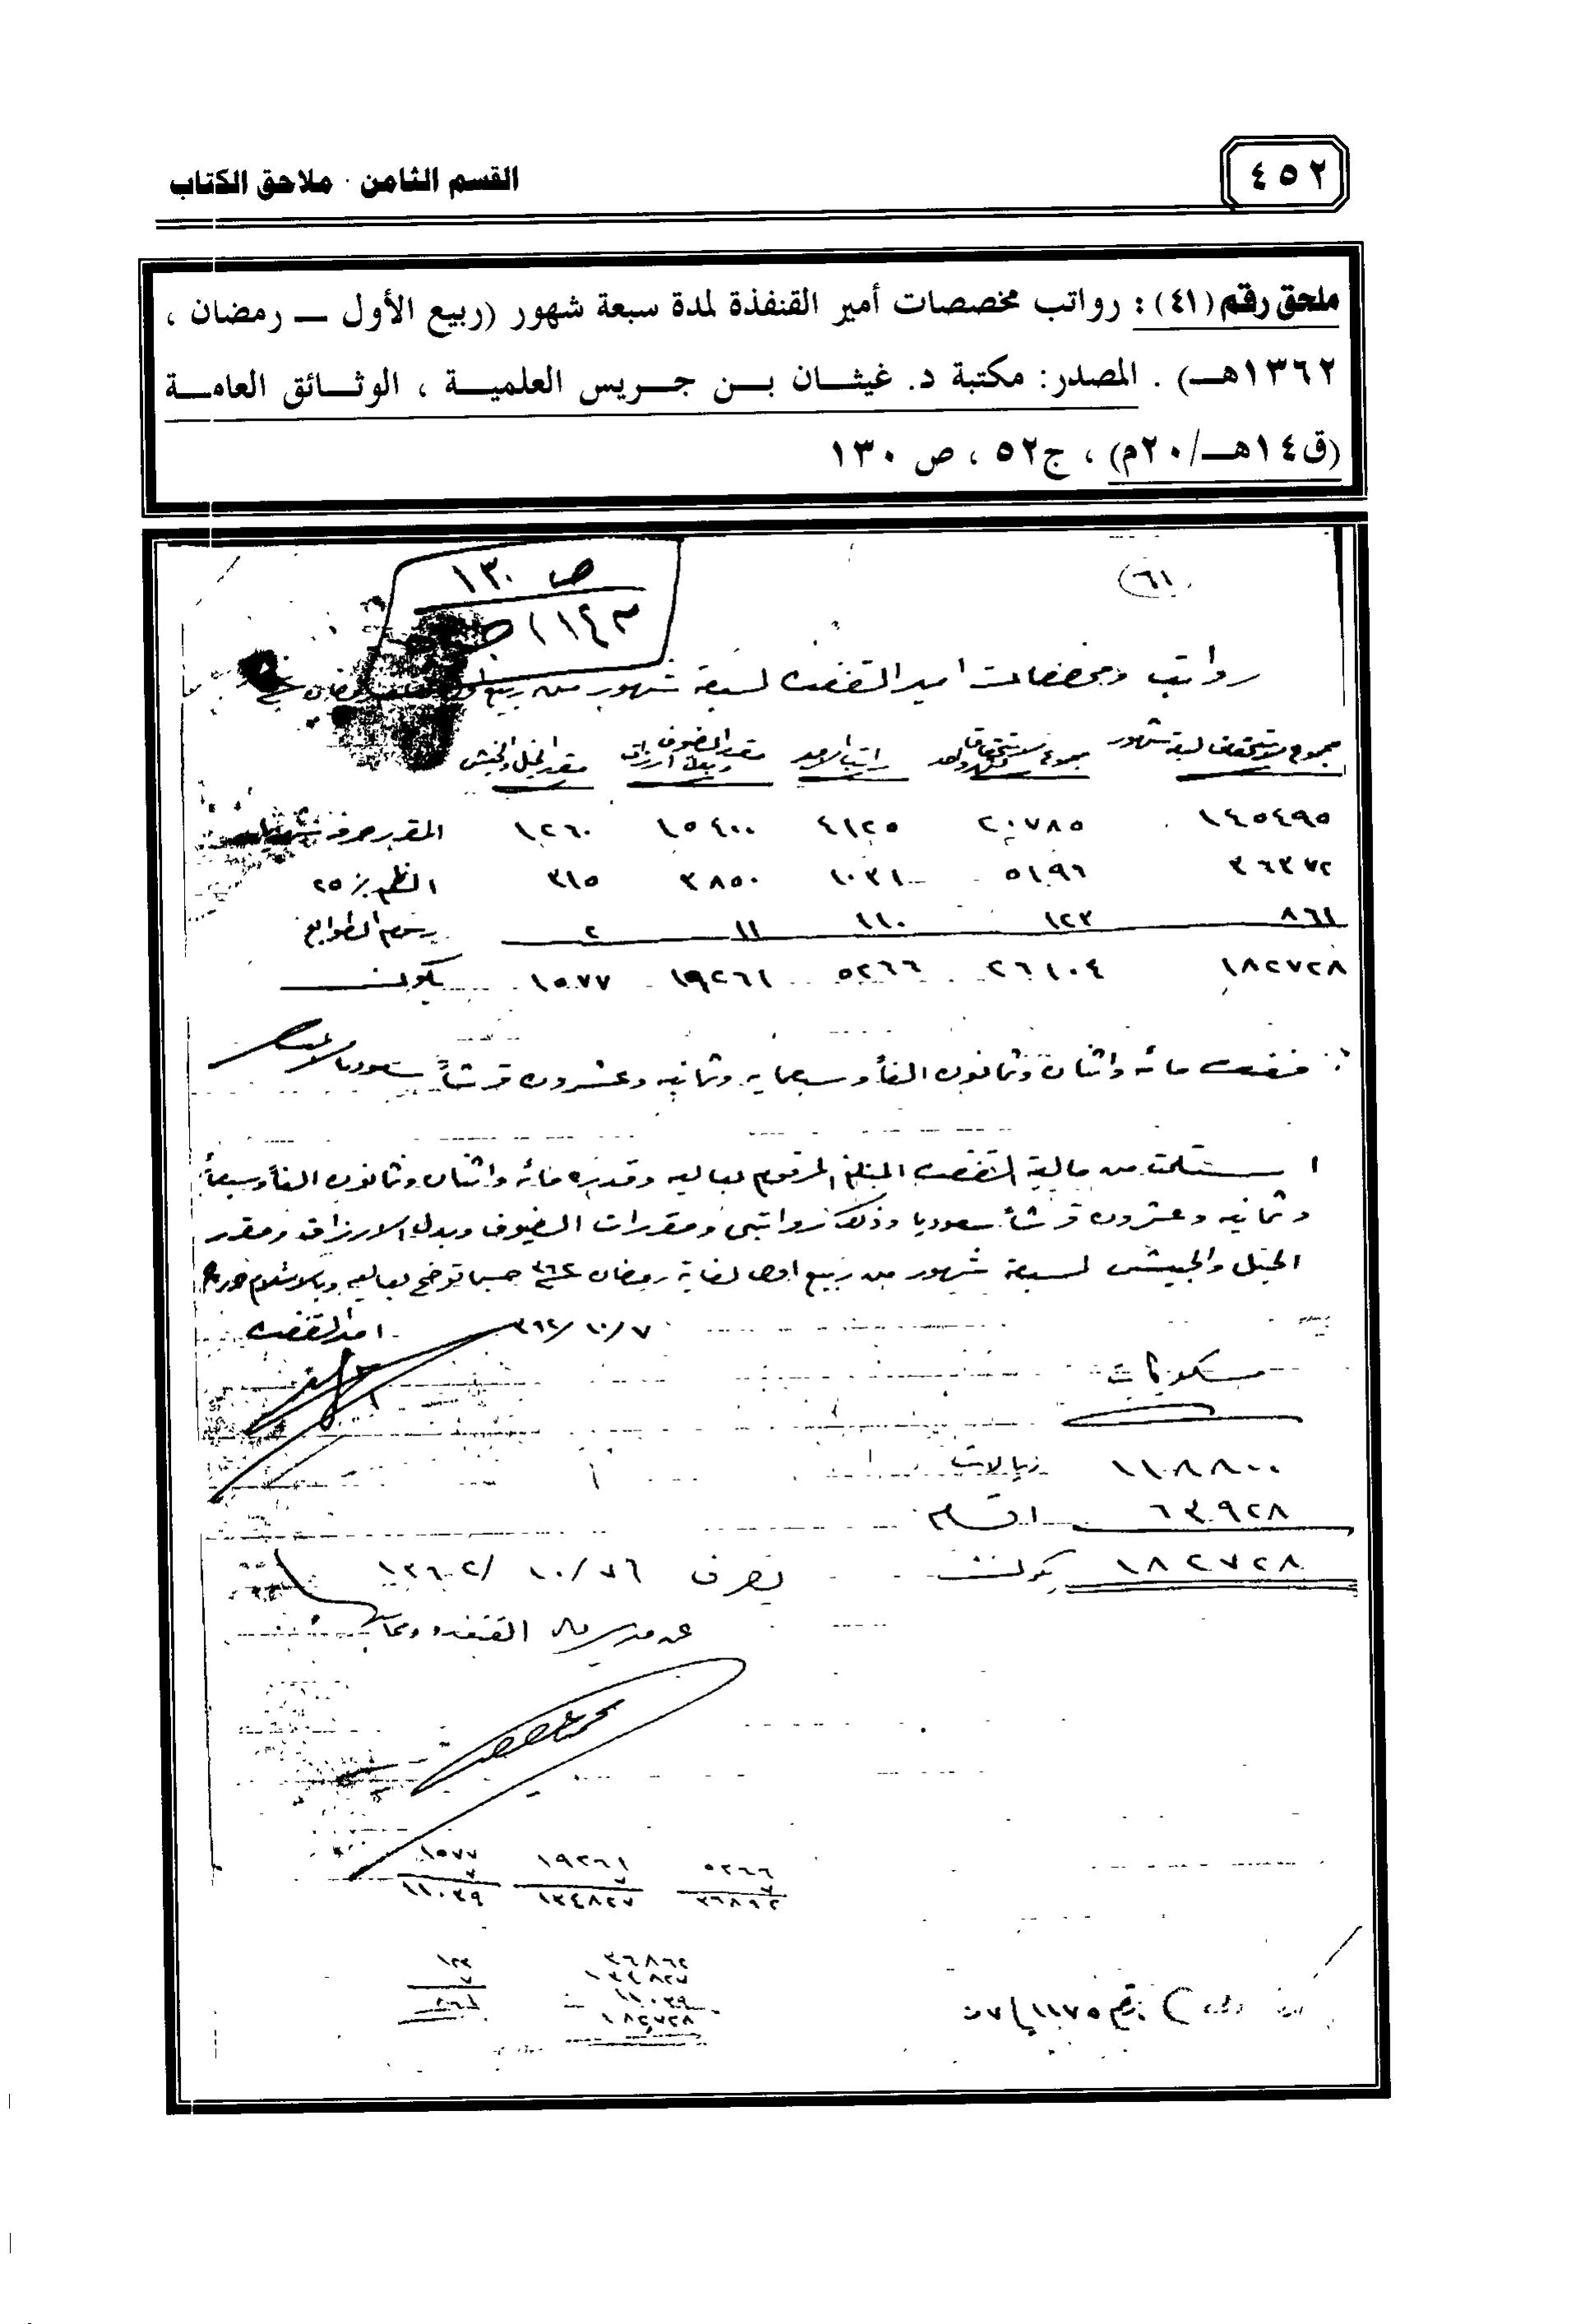 ٤٥٢
القسم الثامن . ملاحق الكتاب
ملحق رقم (٤١) : رواتب مخصصات أمير القنفذة لمدة سبعة شهور (ربيع الأول — رمضان ،
١٣٦٢هـ) . المصدر: مكتبة د. غيثان بن جريس العلمية ، الوثائق العامة
(ق١٤هـ/٢٠م) ، ج٥٢ ، ص ١٣٠
ص ١٣٠
رواتب ومخصصات امير القنفده لسبعة شهور من ربيع
مجموع استحقاق لسبعة شهور مجموع استحقاق لشهر واحد راتب الامير مقرر الضيوف وبدل ارزاق مقرر الخيل والجيش
١٤٥٤٩٥ ٢٠٧٨٥ ٤١٢٥ ١٥٤٠٠ ١٢٦٠ المقرر صرفه شهريا
٣٦٣٧٢ ٥١٩٦ ١٠٣١ ٣٨٥٠ ٣١٥ الضم ٪ ٢٥
٨٦١ ١٢٣ ١١٠ ١١ ٢ رسم الطوابع
١٨٢٧٢٨ ٢٦١٠٤ ٥٢٦٦ ١٩٢٦١ ١٥٧٧ يكون
فقط مائه واثنان وثمانون الفاً وسبعمايه وثمانيه وعشرون قرشاً سعوديا لاغير
استلمت من مالية القنفده المبلغ المرقوم بعاليه وقدره مائه واثنان وثمانون الفاً وسبعمائة
وثمانيه وعشرون قرشاً سعوديا وذلك رواتبي ومقررات الضيوف وبدل الارزاق ومقرر
الخيل والجيش لسبعة شهور من ربيع اول لغاية رمضان حسبما توضح بعاليه وبالاستلام
٣٦٢/١٠/٧ امير القنفده
مسكوكات
١١٨٨٠٠ ريالات
٦٣٩٢٨ اقسام
١٨٢٧٢٨ يكون يصرف
عن مدير مال القنفده
١٥٧٧ ١٩٢٦١ ٥٢٦٦
٧ ٧ ٧
١١٠٣٩ ١٣٤٨٢٧ ٣٦٨٦٢
٣٦٨٦٢ ١٢٣
١٣٤٨٢٧ ٧
١١٠٣٩ ٨٦١
١٨٢٧٢٨